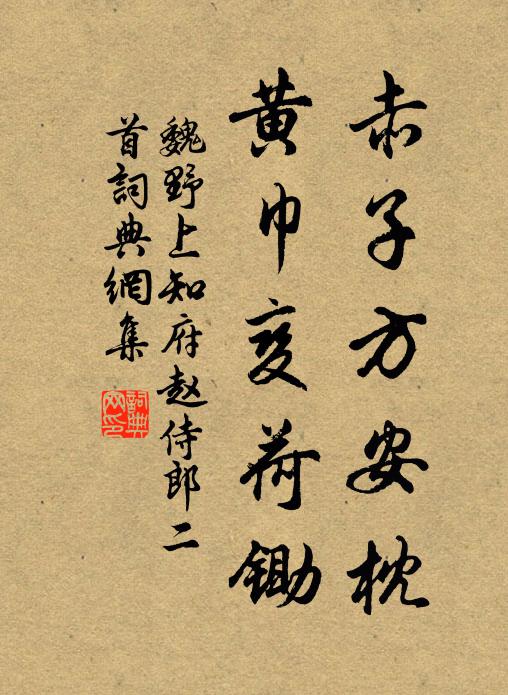 赤子方安枕
黄巾变荷锄
魏野上知府赵侍郎二
首詞典網集
詞典网印